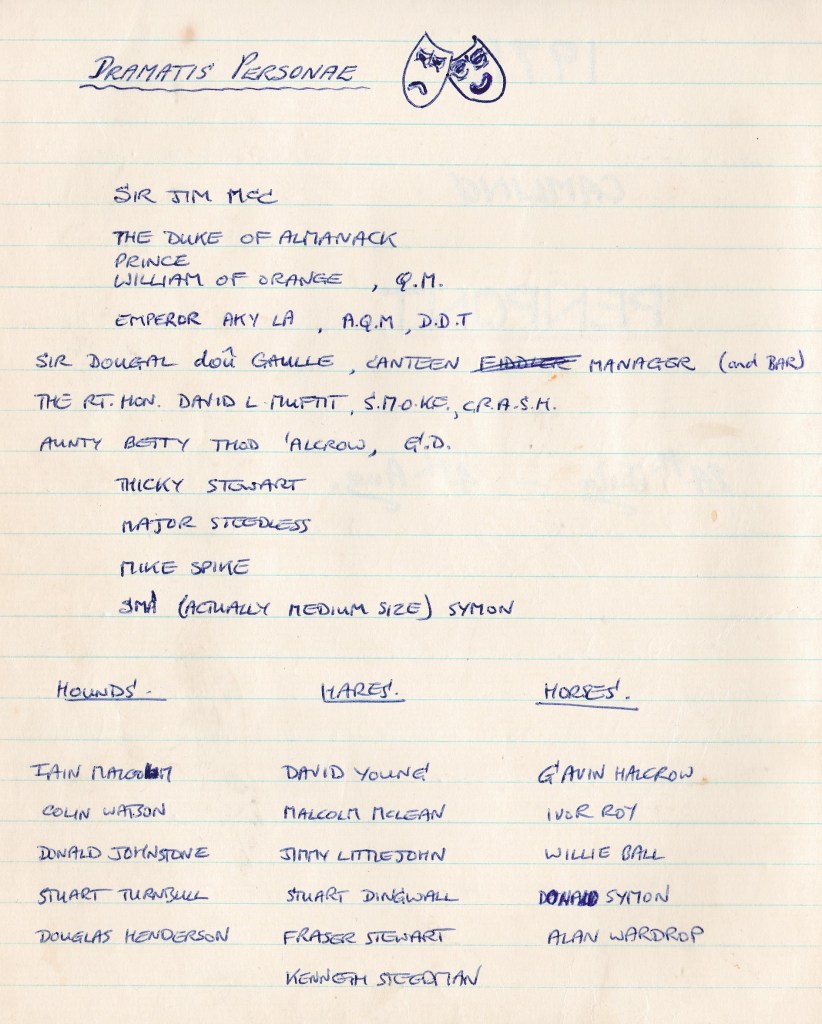 DRAMATIS PERSONAE
SIR JIM McC
THE DUKE OF ALMANACK
PRINCE
WILLIAM OF ORANGE , Q.M.
EMPEROR AKY LA , A.Q.M , D.D.T
SIR DOUGAL doû GAULLE , CANTEEN FIDDLER MANAGER (and BAR)
THE RT. HON. DAVID L. MUFTIT , S.M.O.K.E., C.R.A.S.H.
AUNTY BETTY THOD 'ALCROW, G.D.
THICKY STEWART
MAJOR STEEDLESS
MIKE SPIKE
SMA (ACTUALLY MEDIUM SIZE) SYMON
HOUNDS. HARES. HORSES.
IAIN MALCOLM DAVID YOUNG GAVIN HALCROW
COLIN WATSON MALCOLM McLEAN IVOR ROY
DONALD JOHNSTONE JIMMY LITTLEJOHN WILLIE BALL
STUART TURNBULL STUART DINGWALL DONALD SYMON
DOUGLAS HENDERSON FRASER STEWART ALAN WARDROP
KENNETH STEEDMAN